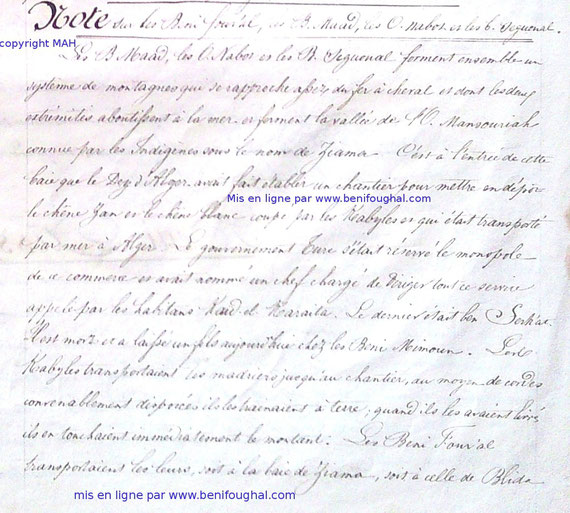 Note sur les Beni Four'al, les B. Maad, les O. Nabet et les B. Seguoual.
copyright MAH
Les B. Maad, les O. Nabet et les B. Seguoual forment ensemble un
système de montagnes qui se rapproche assez du fer à cheval et dont les deux
extrémités aboutissent à la mer et forment la vallée de l'O. Mansouriah
connue par les Indigènes sous le nom de Ziama. C'est à l'entrée de cette
baie que le Dey d'Alger avait fait établir un chantier pour mettre en dépôt
Mis en ligne par www.benifoughal.com
le chêne Zan et le chêne blanc coupé par les Kabyles et qui était transporté
par mer à Alger. Le gouvernement Turc s'était réservé le monopole
de ce commerce et avait nommé un chef chargé de diriger tout ce service
appelé par les habitans Kaïd el Karasta. Le dernier était ben
Il est mort et a laissé un fils aujourd'hui chez les Beni Mimoun. Les
Kabyles transportaient les madriers jusqu'au chantier, au moyen de cordes
convenablement disposées ils les trainaient à terre ; quand ils les avaient livré
ils en touchaient immédiatement le montant. Les Beni Four'al
transportaient les leurs, soit à la baie de Ziama, soit à celle de Blida
mis en ligne par www.benifoughal.com